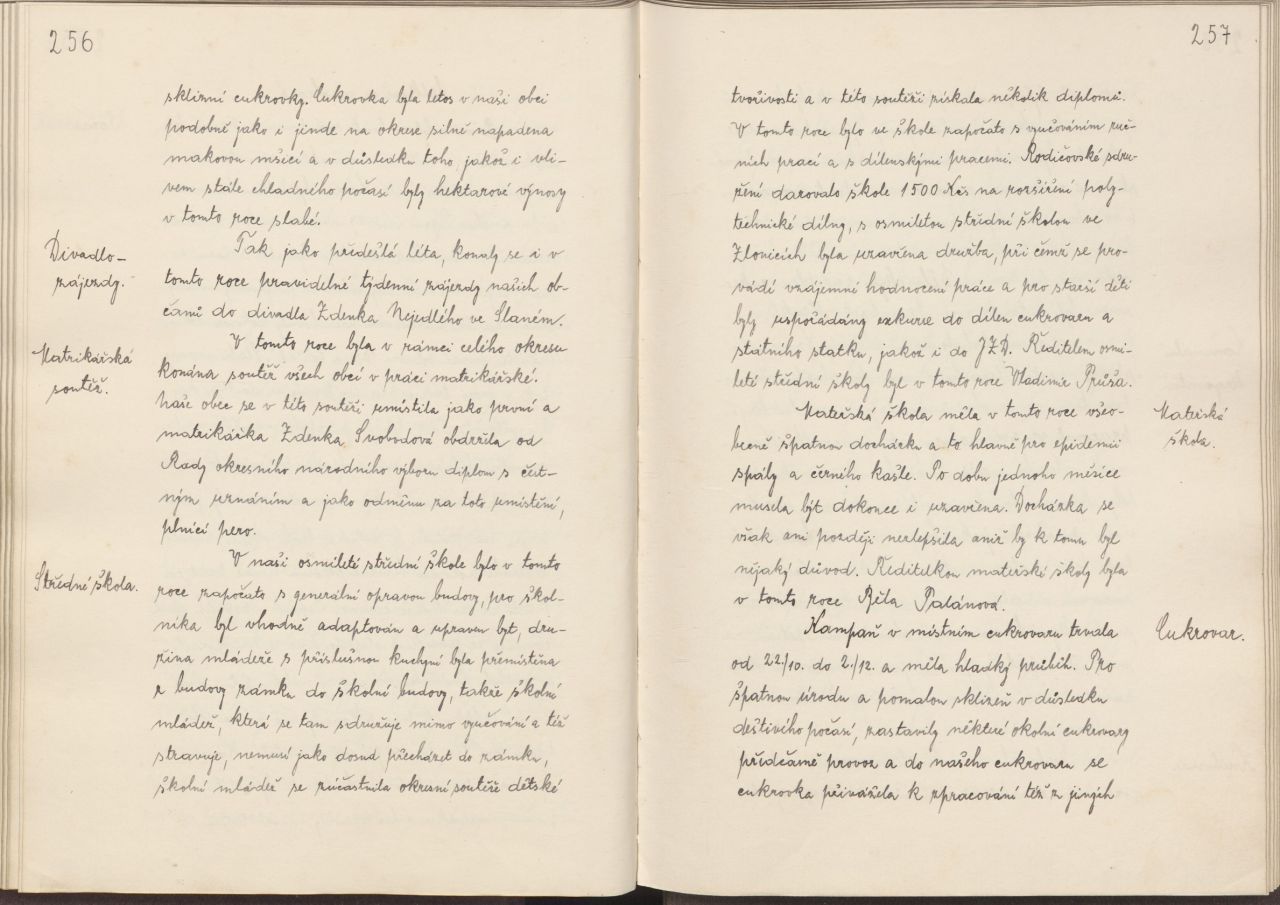 256
sklizni cukrovky. Cukrovka byla letos v naší obci
podobně jako i jinde na okrese silně napadena
makovou mšicí a v důsledku toho, jakož i vli-
vem stále chladného počasí byly hektarové výnosy
v tomto roce slabé.
Divadlo-
zájezdy.
Tak jako předešlá léta, konaly se i v
tomto roce pravidelné týdenní zájezdy našich ob-
čanů do divadla Zdenka Nejedlého ve Slaném.
Matrikářská
soutěž.
V tomto roce byla v rámci celého okresu
konána soutěž všech obcí v práci matrikářské.
Naše obec se v této soutěži umístila jako první a
matrikářka Zdenka Svobodová obdržela od
Rady okresního národního výboru diplom s čest-
ným uznáním a jako odměnu za toto umístění,
plnící pero.
Středně škola.
V naší osmileté střední škole bylo v tomto
roce započato s generální opravou budovy, pro škol-
níka byl vhodně adaptován a upraven byt, dru-
žina mládeže s příslušnou kuchyní byla přemístěna
z budovy zámku do školní budovy, takže školní
mládež, která se tam sdružuje mimo vyučování a též
stravuje, nemusí jako dosud přecházet do zámku,
školní mládež se zúčastnila okresní soutěže dětské
257
tvořivosti a v této soutěži získala několik diplomů.
V tomto roce bylo ve škole započato s vyučováním ruč-
ních prací a s dílenskými pracemi. Rodičovské sdru-
žení darovalo škole 1500 Kčs na rozšíření poly-
technické dílny, s osmiletou střední školou ve
Zlonicích byla uzavřena družba, při čemž se pro-
vádí vzájemné hodnocení práce a pro starší děti
byly uspořádány exkurse do dílen cukrovaru a
státního statku, jakož i do JZD. Ředitelem osmi-
leté střední školy byl v tomto roce Vladimír Průša.
Mateřská škola měla v tomto roce všeo-
becně špatnou docházku a to hlavně pro epidemii
spály a černého kašle. Po dobu jednoho měsíce
musela být dokonce i uzavřena. Docházka se
však ani později nezlepšila aniž by k tomu byl
nějaký důvod. Ředitelkou mateřské školy byla
v tomto roce Běla Palánová.
Mateřská
škola.
Kampaň v místním cukrovaru trvala
od 22./10. do 2./12. a měla hladký průběh. Pro
špatnou úrodu a pomalou sklizeň v důsledku
deštivého počasí, zastavily některé okolní cukrovary
předčasně provoz a do našeho cukrovaru se
cukrovka přivážela k zpracování též z jiných
Cukrovar.